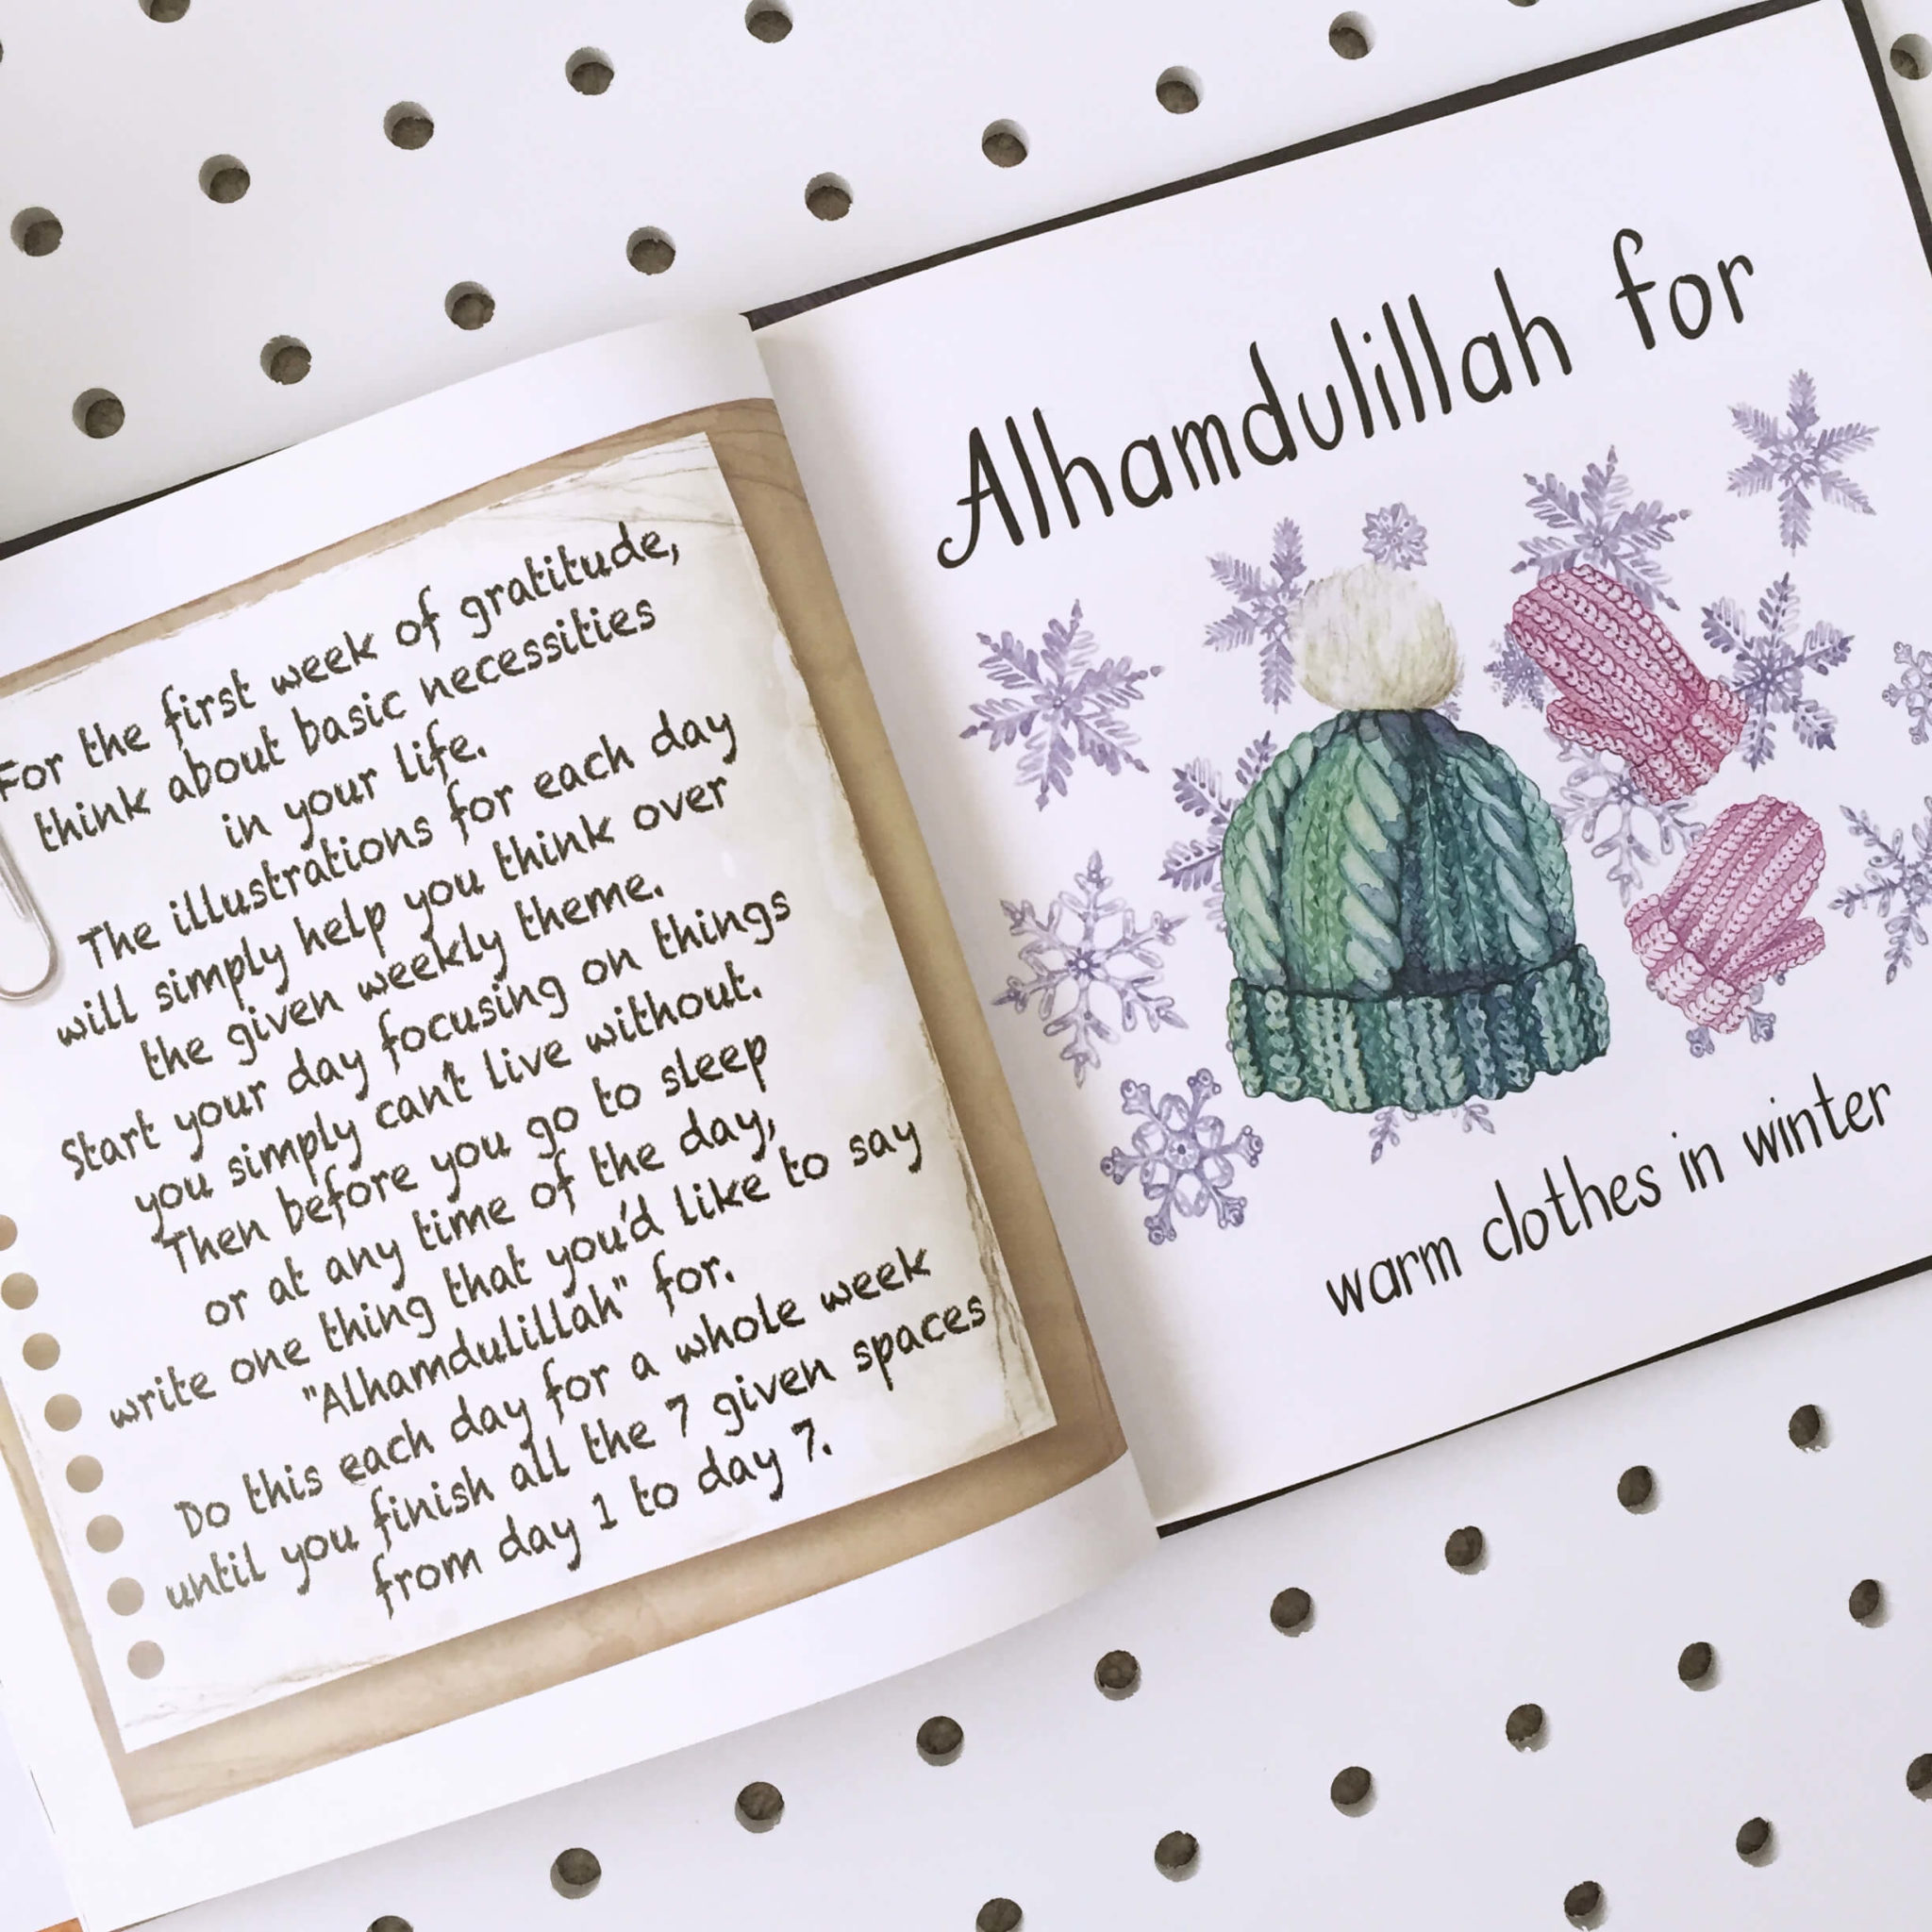 For the first week of gratitude,
think about basic necessities
in your life.
The illustrations for each day
will simply help you think over
the given weekly theme.
Start your day focusing on things
you simply can't live without.
Then before you go to sleep
or at any time of the day,
write one thing that you'd like to say
"Alhamdulillah" for.
Do this each day for a whole week
until you finish all the 7 given spaces
from day 1 to day 7.
Alhamdulillah for
warm clothes in winter